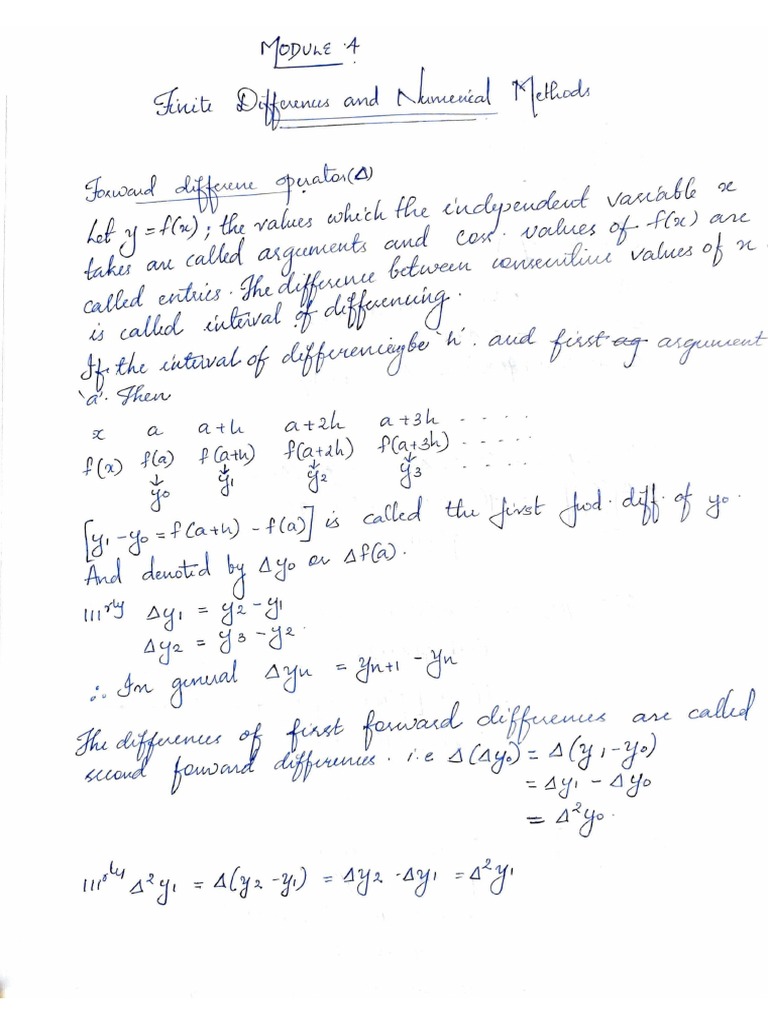 MODULE 4
Finite Differences and Numerical Methods
Forward difference operator(Δ)
Let y = f(x) ; the values which the independent variable x
takes are called arguments and corr. values of f(x) are
called entries. The difference between consecutive values of x
is called interval of differencing.
If the interval of differencing be 'h'. and first ag argument
'a'. Then
x a a+h a+2h a+3h - - - -
f(x) f(a) f(a+h) f(a+2h) f(a+3h) - - - - -
↓ ↓ ↓ ↓
y0 y1 y2 y3 - - - -
[y1 - y0 = f(a+h) - f(a)] is called the first fwd. diff. of y0.
And denoted by Δy0 or Δf(a).
IIIrly Δy1 = y2 - y1
Δy2 = y3 - y2.
∴ In general Δyn = yn+1 - yn
The differences of first forward differences are called
second forward differences. i.e Δ(Δy0) = Δ(y1 - y0)
= Δy1 - Δy0
= Δ²y0.
IIIrly Δ²y1 = Δ(y2 - y1) = Δy2 - Δy1 = Δ²y1